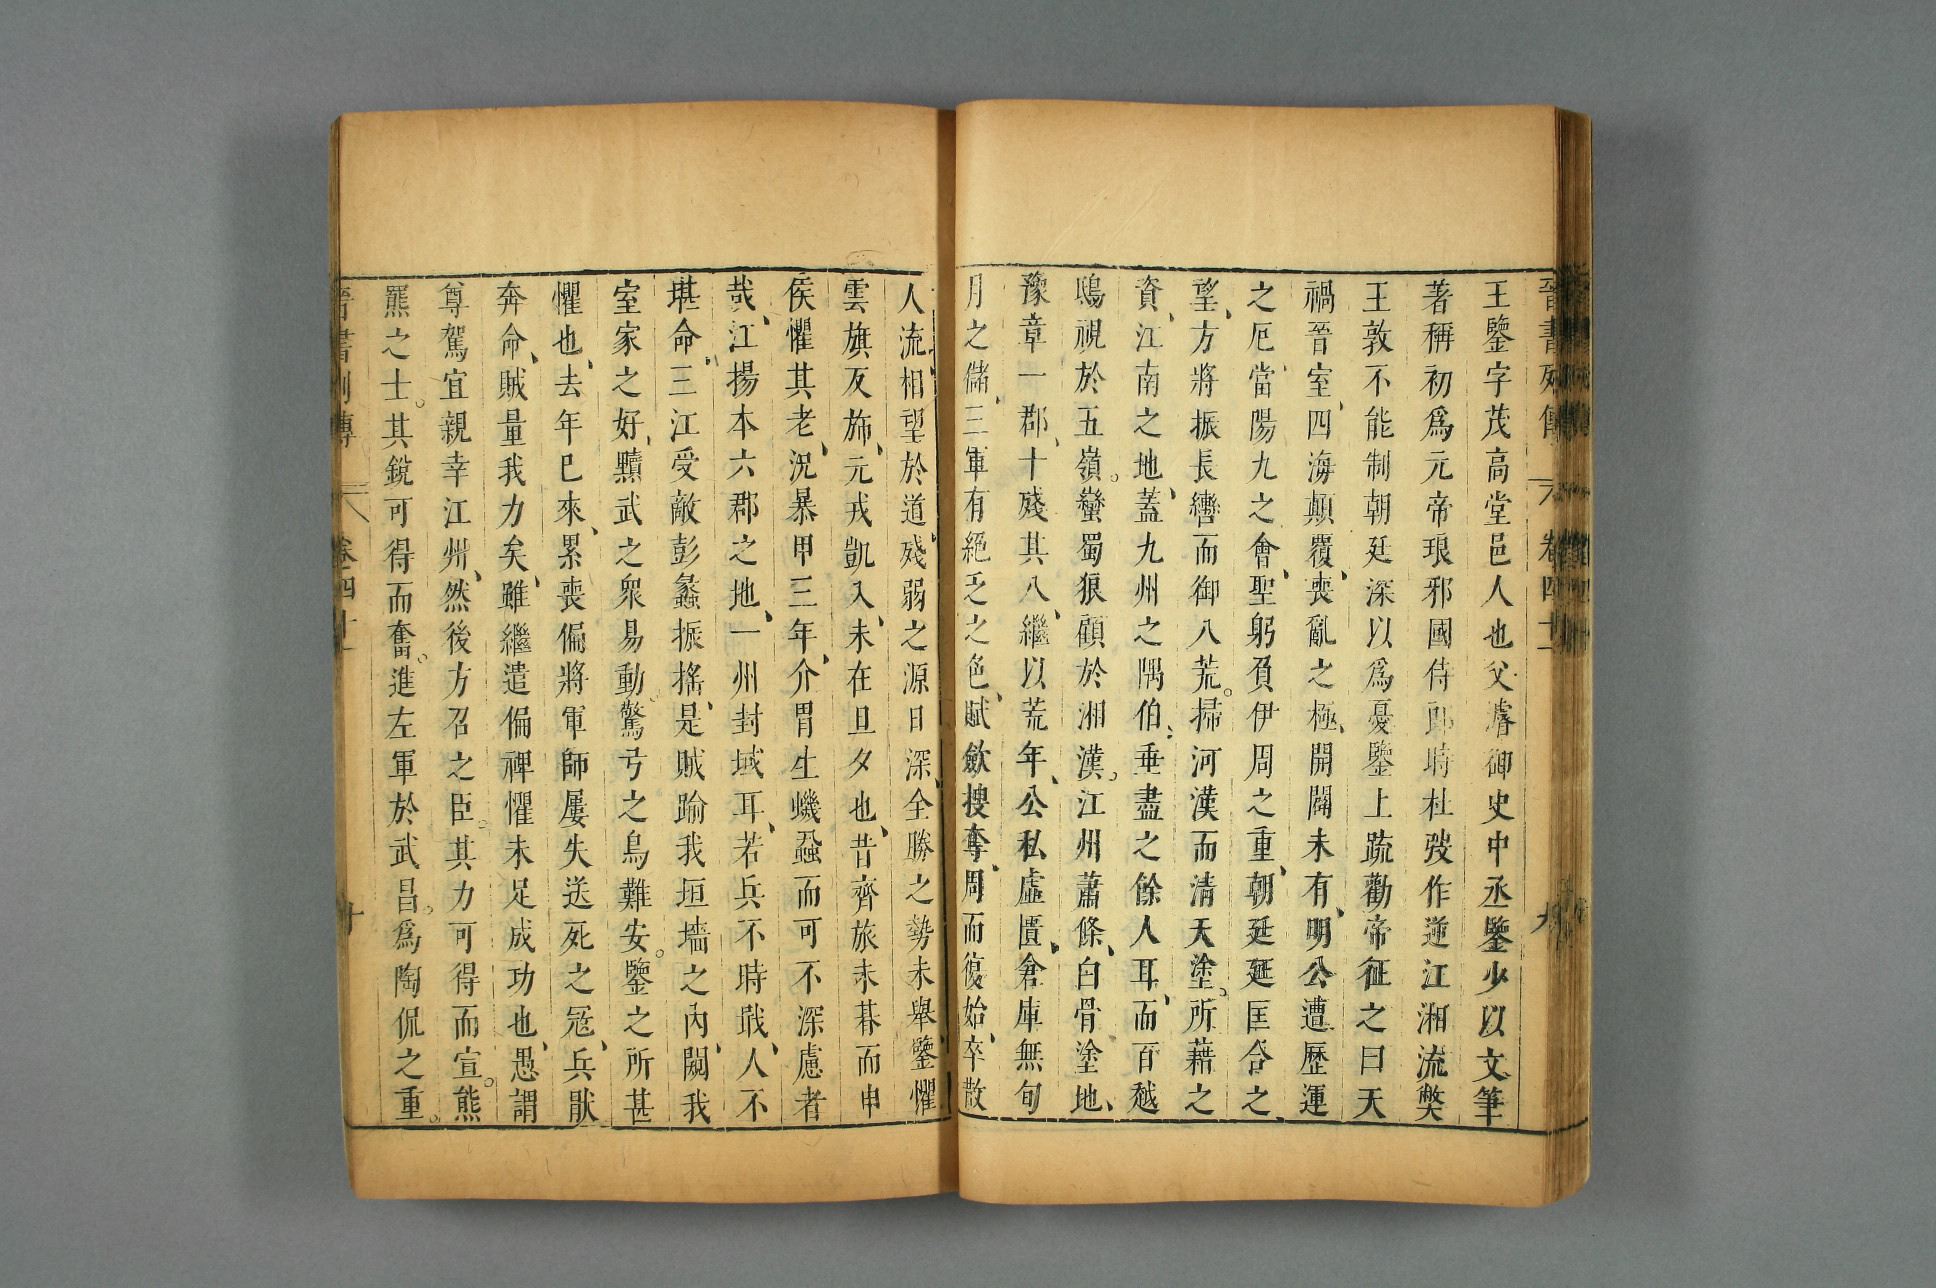 晉書列傳 卷四十一 九
王鑒字茂高堂邑人也父濬御史中丞鑒少以文筆
著稱初爲元帝琅邪國侍郎時杜弢作逆江湘流弊
王敦不能制朝廷深以爲憂鑒上疏勸帝征之曰天
禍晉室、四海顛覆、喪亂之極、開闢未有、明公遭歷運
之厄、當陽九之會、聖躬負伊周之重、朝廷延匡合之、
望、方將振長轡而御八荒。掃河漢而清天塗。所藉之
資、江南之地、蓋九州之隅伯、垂盡之餘人耳、而百越
鴟視於五嶺。蠻蜀狼顧於湘漢。江州蕭條、白骨塗地、
豫章一郡、十殘其八、繼以荒年、公私虛匱、倉庫無旬
月之儲、三軍有絕乏之色、賦斂搜奪、周而復始、卒散
人流、相望於道、殘弱之源日深、全勝之勢未舉、鑒懼
雲旗反旆、元戎凱入、未在旦夕也、昔齊旅未朞而申
侯懼其老、況暴甲三年、介胄生蟣蝨而可不深慮者
哉、江揚本六郡之地、一州封域耳、若兵不時戢、人不
堪命、三江受敵彭蠡振搖、是賊踰我垣墻之內、闚我
室家之好、黷武之衆易動、驚弓之鳥難安。鑒之所甚
懼也、去年已來、累喪偏將軍師屢失送死之寇、兵厭
奔命、賊量我力矣、雖繼遣偏裨懼未足成功也、愚謂
尊駕宜親幸江州、然後方召之臣。其力可得而宣。熊
羆之士。其銳可得而奮。進左軍於武昌。爲陶侃之重。
晉書列傳 卷四十一 十